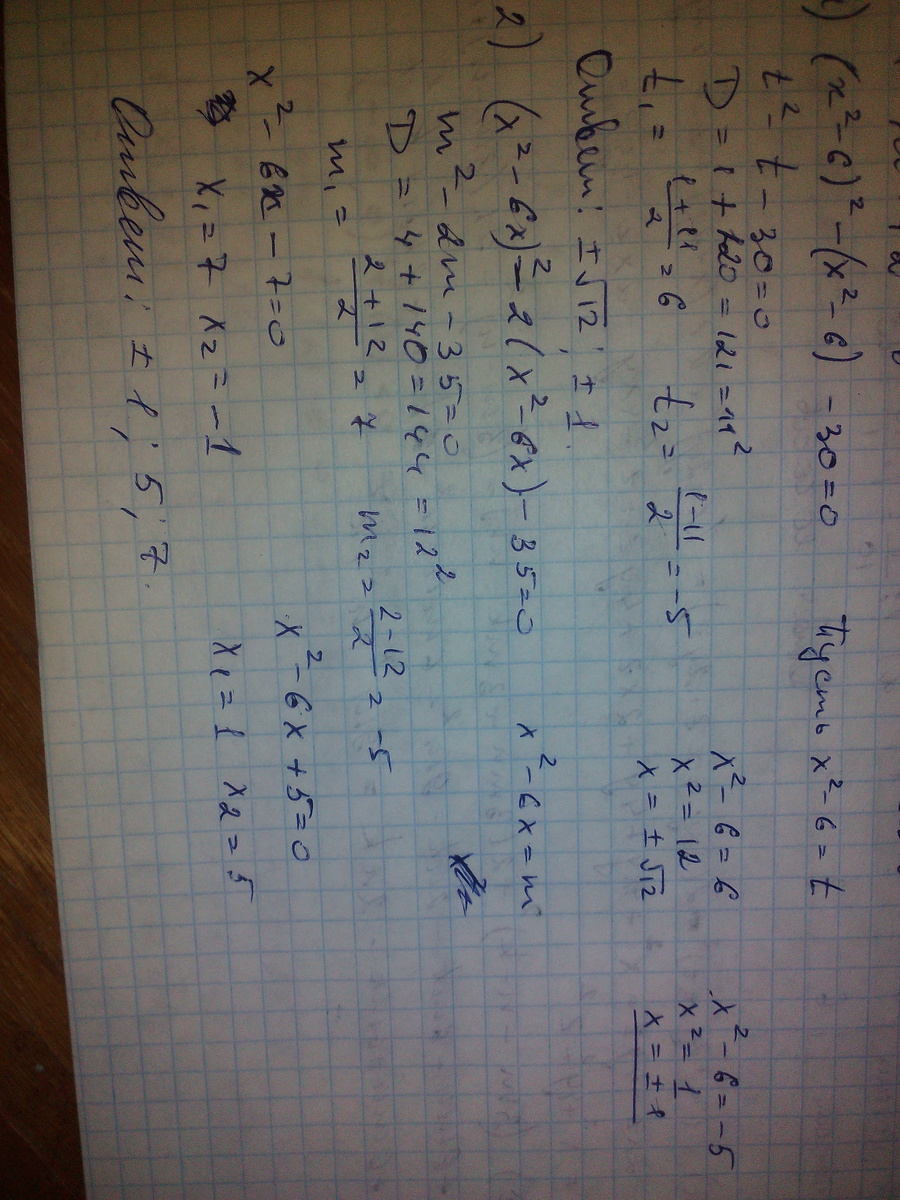 1) (x²-6)² - (x²-6) - 30 = 0   Пусть x²-6 = t
t² - t - 30 = 0
D = 1 + 120 = 121 = 11²   x²-6 = 6   x²-6 = -5
t₁ = (1+11)/2 = 6   t₂ = (1-11)/2 = -5   x² = 12   x² = 1
x = ±√12   x = ±1
Ответ: ±√12; ±1.
2) (x²-6x)² - 2(x²-6x) - 35 = 0   x²-6x = m
m² - 2m - 35 = 0
D = 4 + 140 = 144 = 12²
m₁ = (2+12)/2 = 7   m₂ = (2-12)/2 = -5
x² - 6x - 7 = 0   x² - 6x + 5 = 0
x₁ = 7   x₂ = -1   x₁ = 1   x₂ = 5
Ответ: ±1; 5; 7.